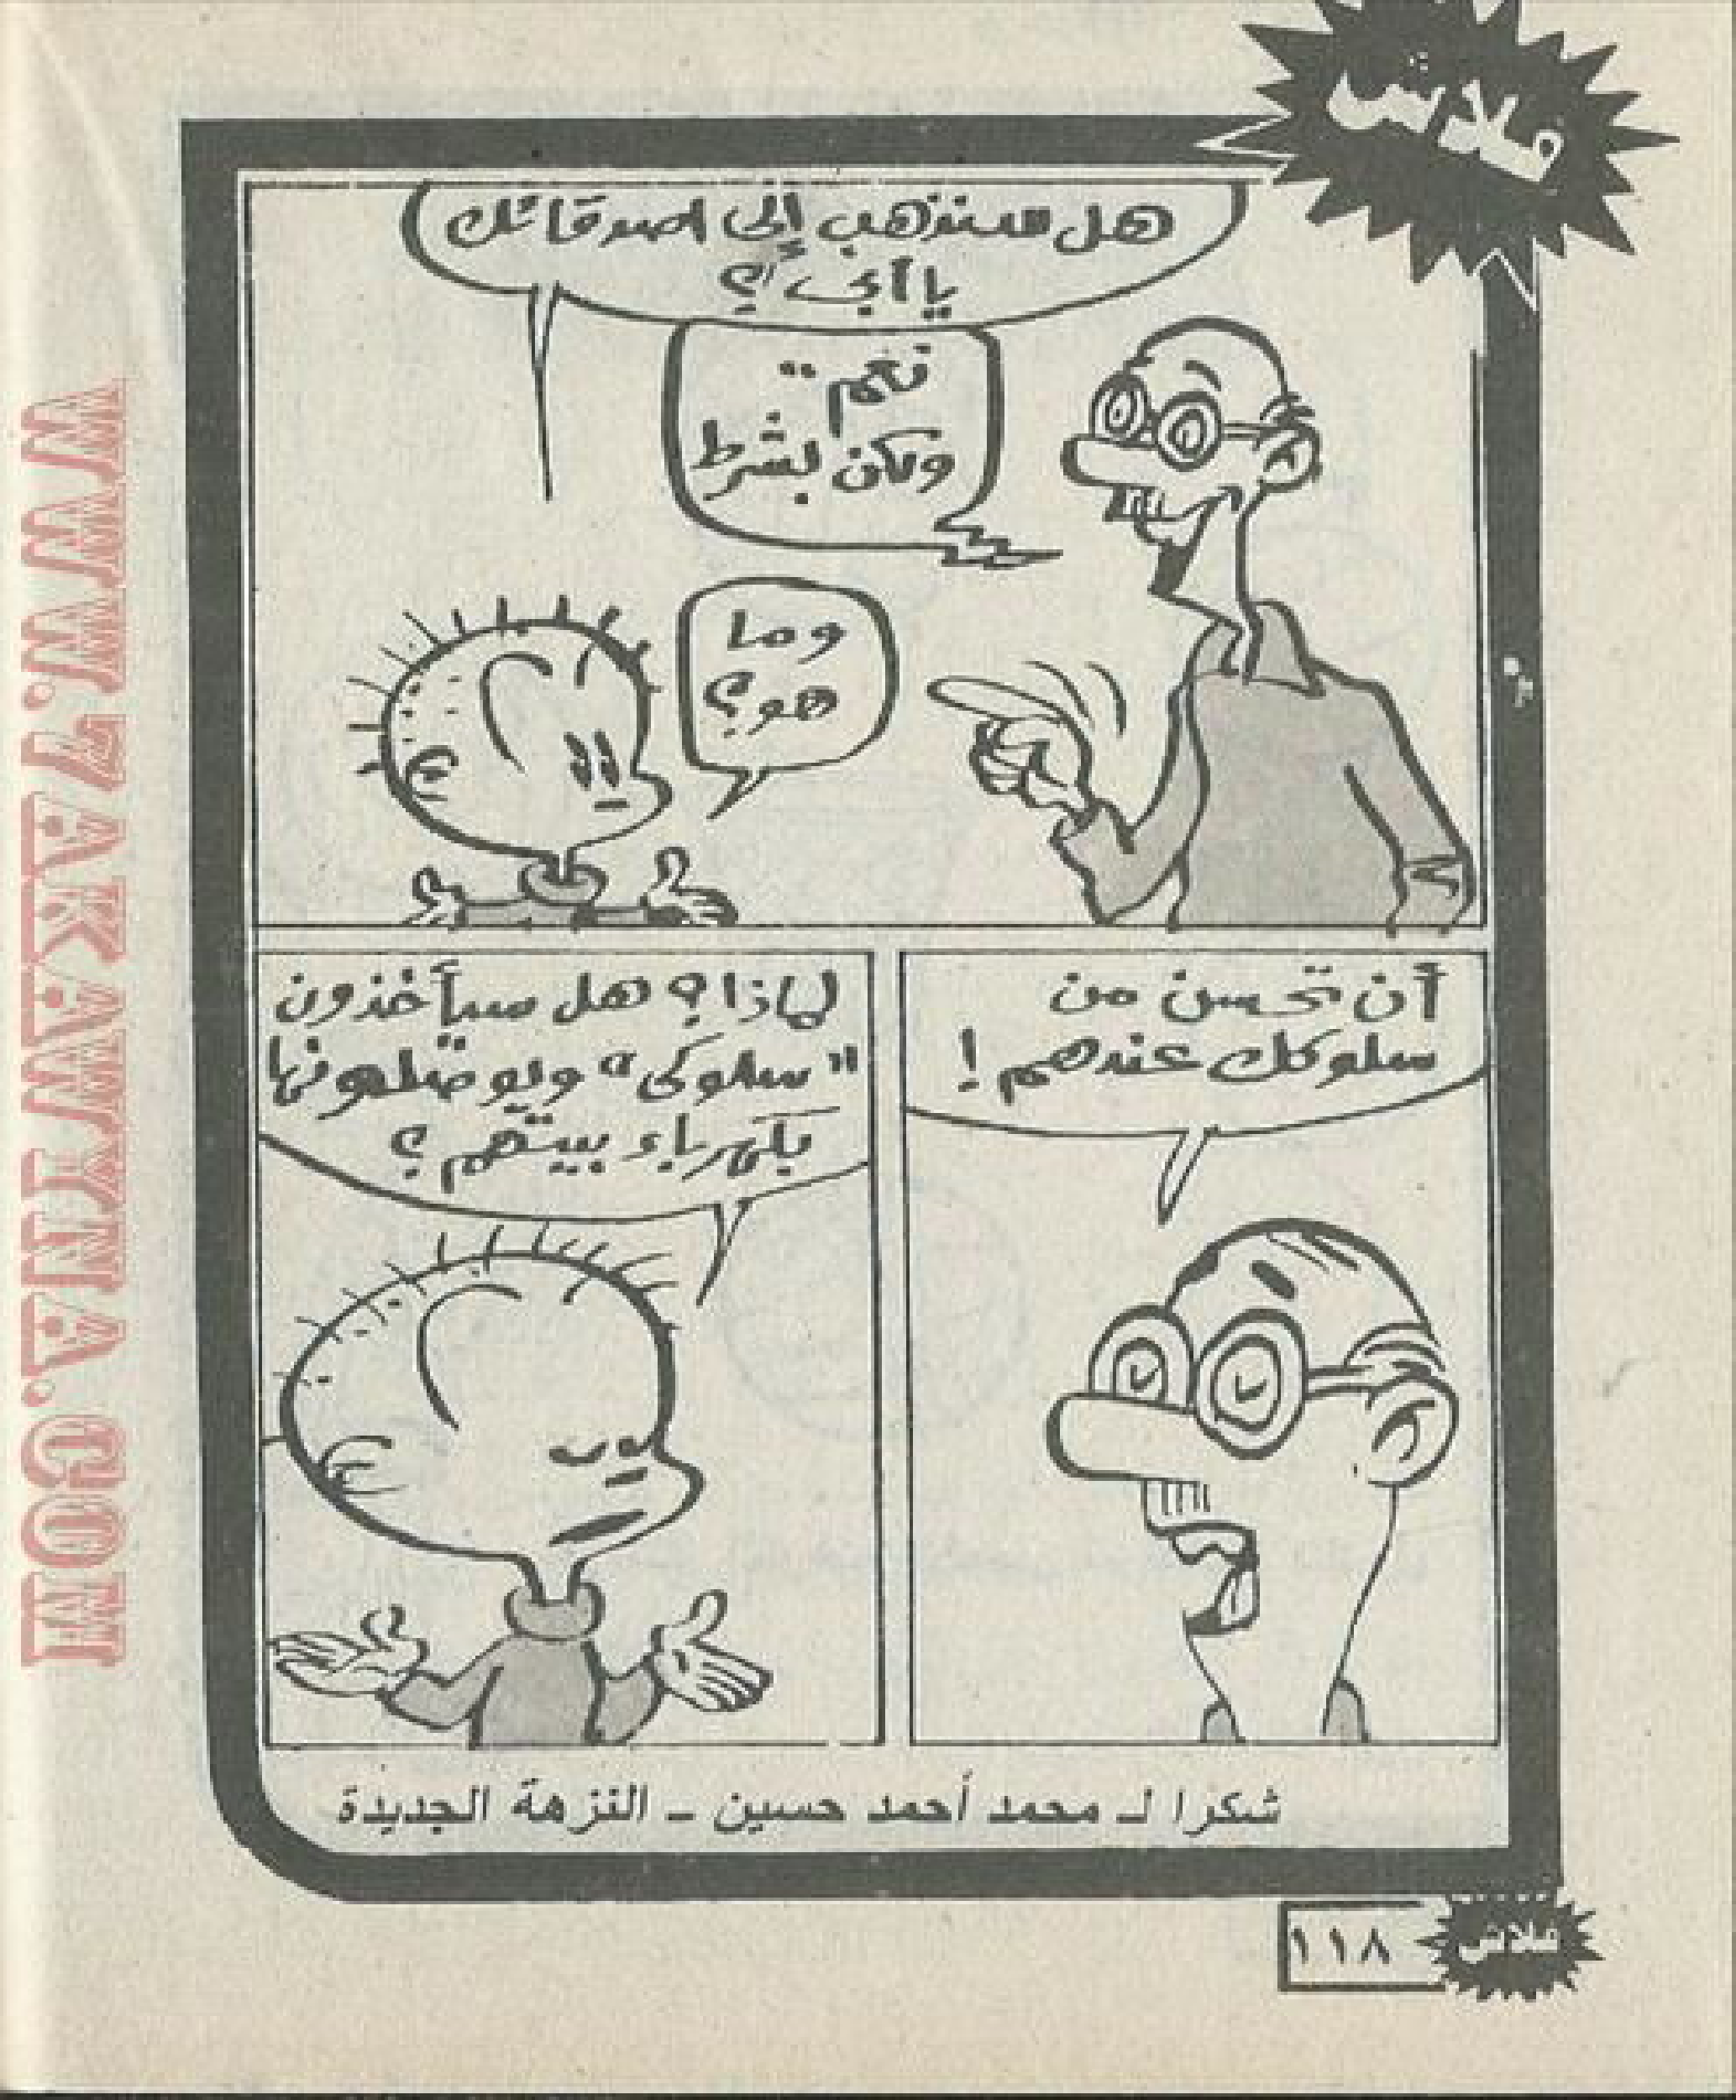 فلاش
هل سنذهب إلى اصدقائك
يا أبى؟
نعم..
ولكن بشرط
وما
هو؟
أن تحسن من
سلوكك عندهم!
لماذا؟ هل سيأخذون
"سلوكى" ويوصلونها
بكهرباء بيتهم؟
شكرا لـ محمد أحمد حسين - النزهة الجديدة
فلاش
١١٨